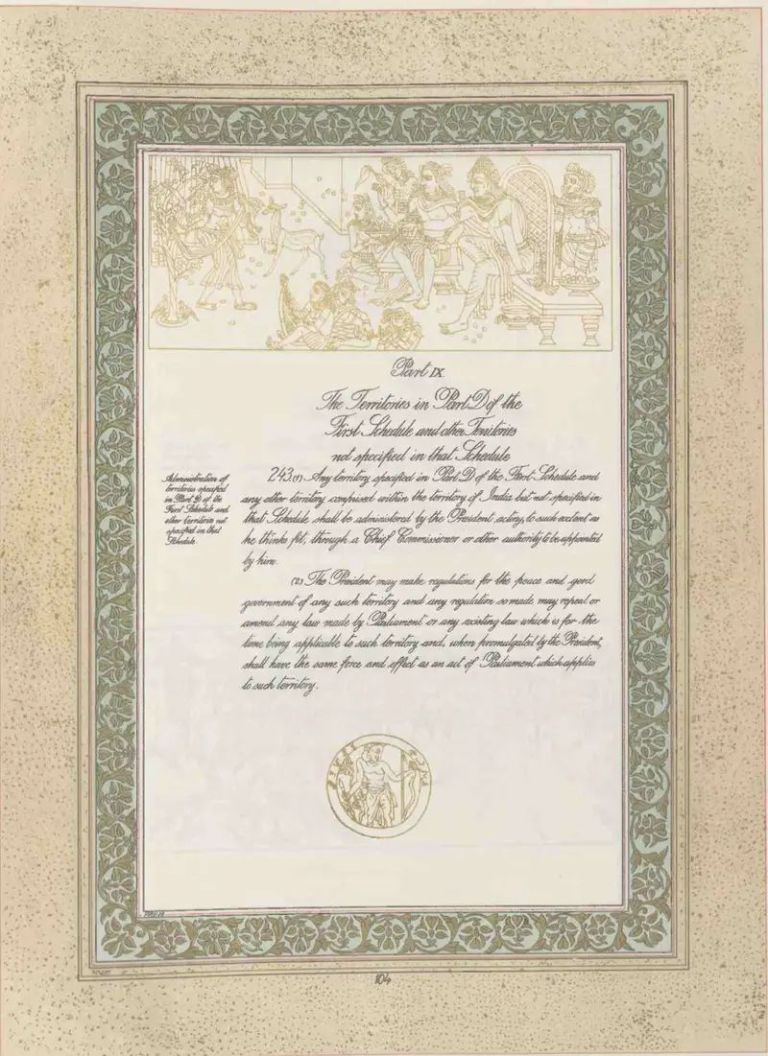 Part IX
The Territories in Part D of the
First Schedule and other Territories
not specified in that Schedule
Administration of
territories specified
in Part D of the
First Schedule and
other territories not
specified in that
Schedule.
243.(1) Any territory specified in Part D of the First Schedule and
any other territory comprised within the territory of India but not specified in
that Schedule shall be administered by the President acting, to such extent as
he thinks fit, through a Chief Commissioner or other authority to be appointed
by him.
(2) The President may make regulations for the peace and good
government of any such territory and any regulation so made may repeal or
amend any law made by Parliament or any existing law which is for the
time being applicable to such territory and, when promulgated by the President,
shall have the same force and effect as an act of Parliament which applies
to such territory.
104